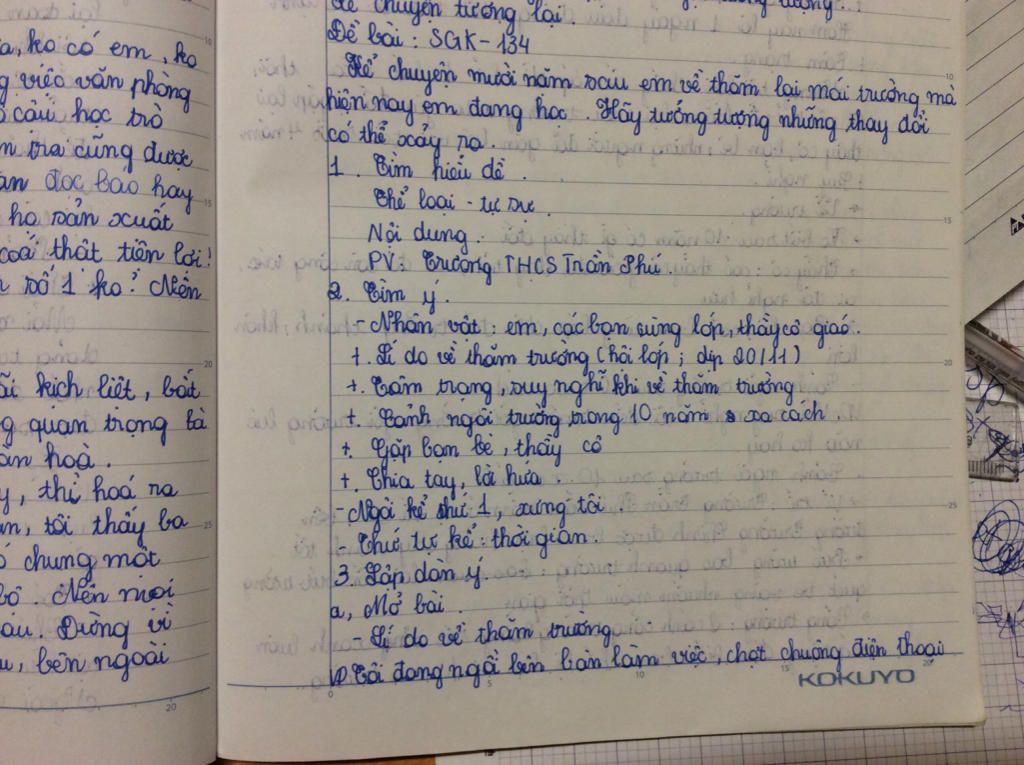 a, ko có em, ko
g việc văn phòng
cầu học trò
ra cũng được
ăn đọc báo hay
họ sản xuất
coá thật tiện lợi!
số 1 ko? Nên
ãi kịch liệt, bất
g quan trọng là
ăn hoà.
y, thì hoá ra
an, tôi thấy ba
ó chung một
bố. Nên mọi
âu. Đừng vì
u, bên ngoài
Kể chuyện tưởng tượng.
Kể chuyện tương lai
Đề bài: SGK-134
Kể chuyện mười năm sau em về thăm lại mái trường mà
hiện nay em đang học. Hãy tưởng tượng những thay đổi
có thể xảy ra.
1. Tìm hiểu đề.
Thể loại - tự sự.
Nội dung.
PV: Trường THCS Trần Phú.
2. Tìm ý.
- Nhân vật: em, các bạn cùng lớp, thầy cô giáo.
+. Lí do về thăm trường (hội lớp; dịp 20/11)
+. Tâm trạng, suy nghĩ khi về thăm trường
+. Cảnh ngôi trường trong 10 năm xa cách.
+. Gặp bạn bè, thầy cô
+. Chia tay, lời hứa.
- Ngôi kể thứ 1, xưng tôi.
- Thứ tự kể: thời gian.
3. Lập dàn ý.
a, Mở bài.
- Lí do về thăm trường.
VD Tôi đang ngồi bên bàn làm việc, chợt chuông điện thoại
KOKUYO